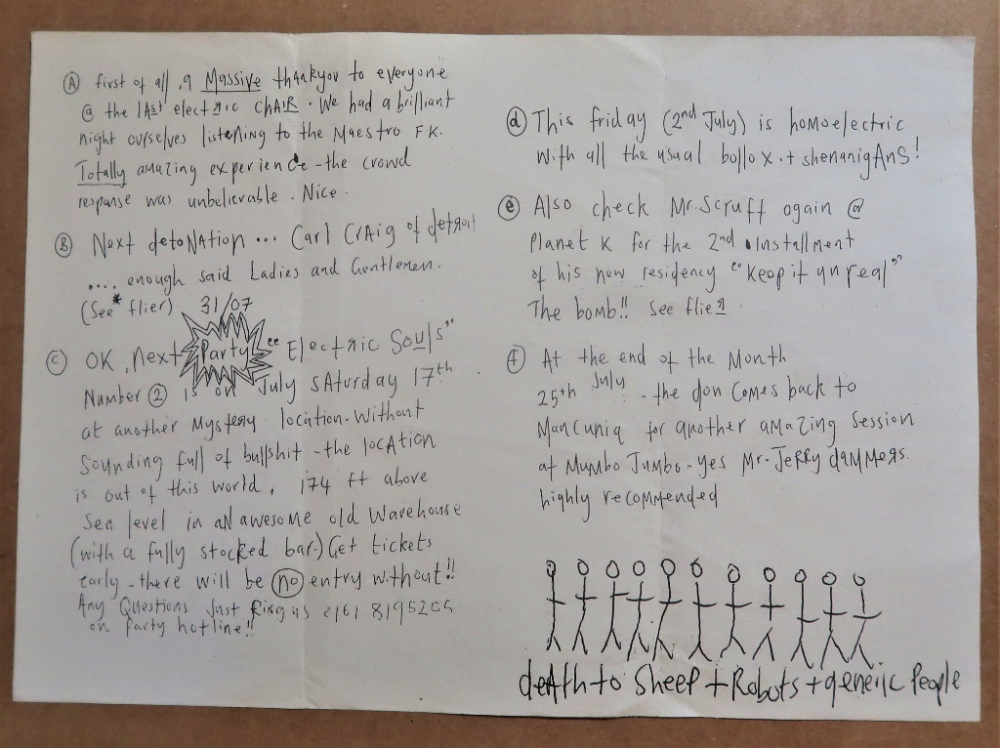 Ⓐ first of all, a Massive thankyou to everyone
@ the lAst electric CHAIR. We had a brilliant
night ourselves listening to the Maestro F.K.
Totally amazing experience - the crowd
response was unbelievable. Nice.
Ⓑ Next detoNAtion ... Carl CrAig of detroit
.... enough said Ladies and Gentlemen.
(See * flier) 31/07
Ⓒ OK, next Party "Electric Souls"
Number ② is on July sAturday 17th.
at another Mystery location. Without
Sounding full of bullshit - the locAtion
is out of this world, 174 ft above
Sea level in aN awesome old Warehouse
(with a fully stocked bar.) Get tickets
early - there will be no entry without!!
Any Questions Just Ring us 0161 8195205
on party hotline!!
ⓓ This friday (2nd July) is homoelectric
with all the usual bollox. + shenanigAnS!
ⓔ Also check Mr. Scruff again @
Planet K for the 2nd Installment
of his new residency "Keep it unreal"
The bomb!! See flier.
ⓕ At the end of the Month
25th July - the don Comes back to
Mancunia for another amazing Session
at Mumbo Jumbo - yes Mr. JeRRy dammers.
highly recommended
deAth to Sheep + Robots + generiic People